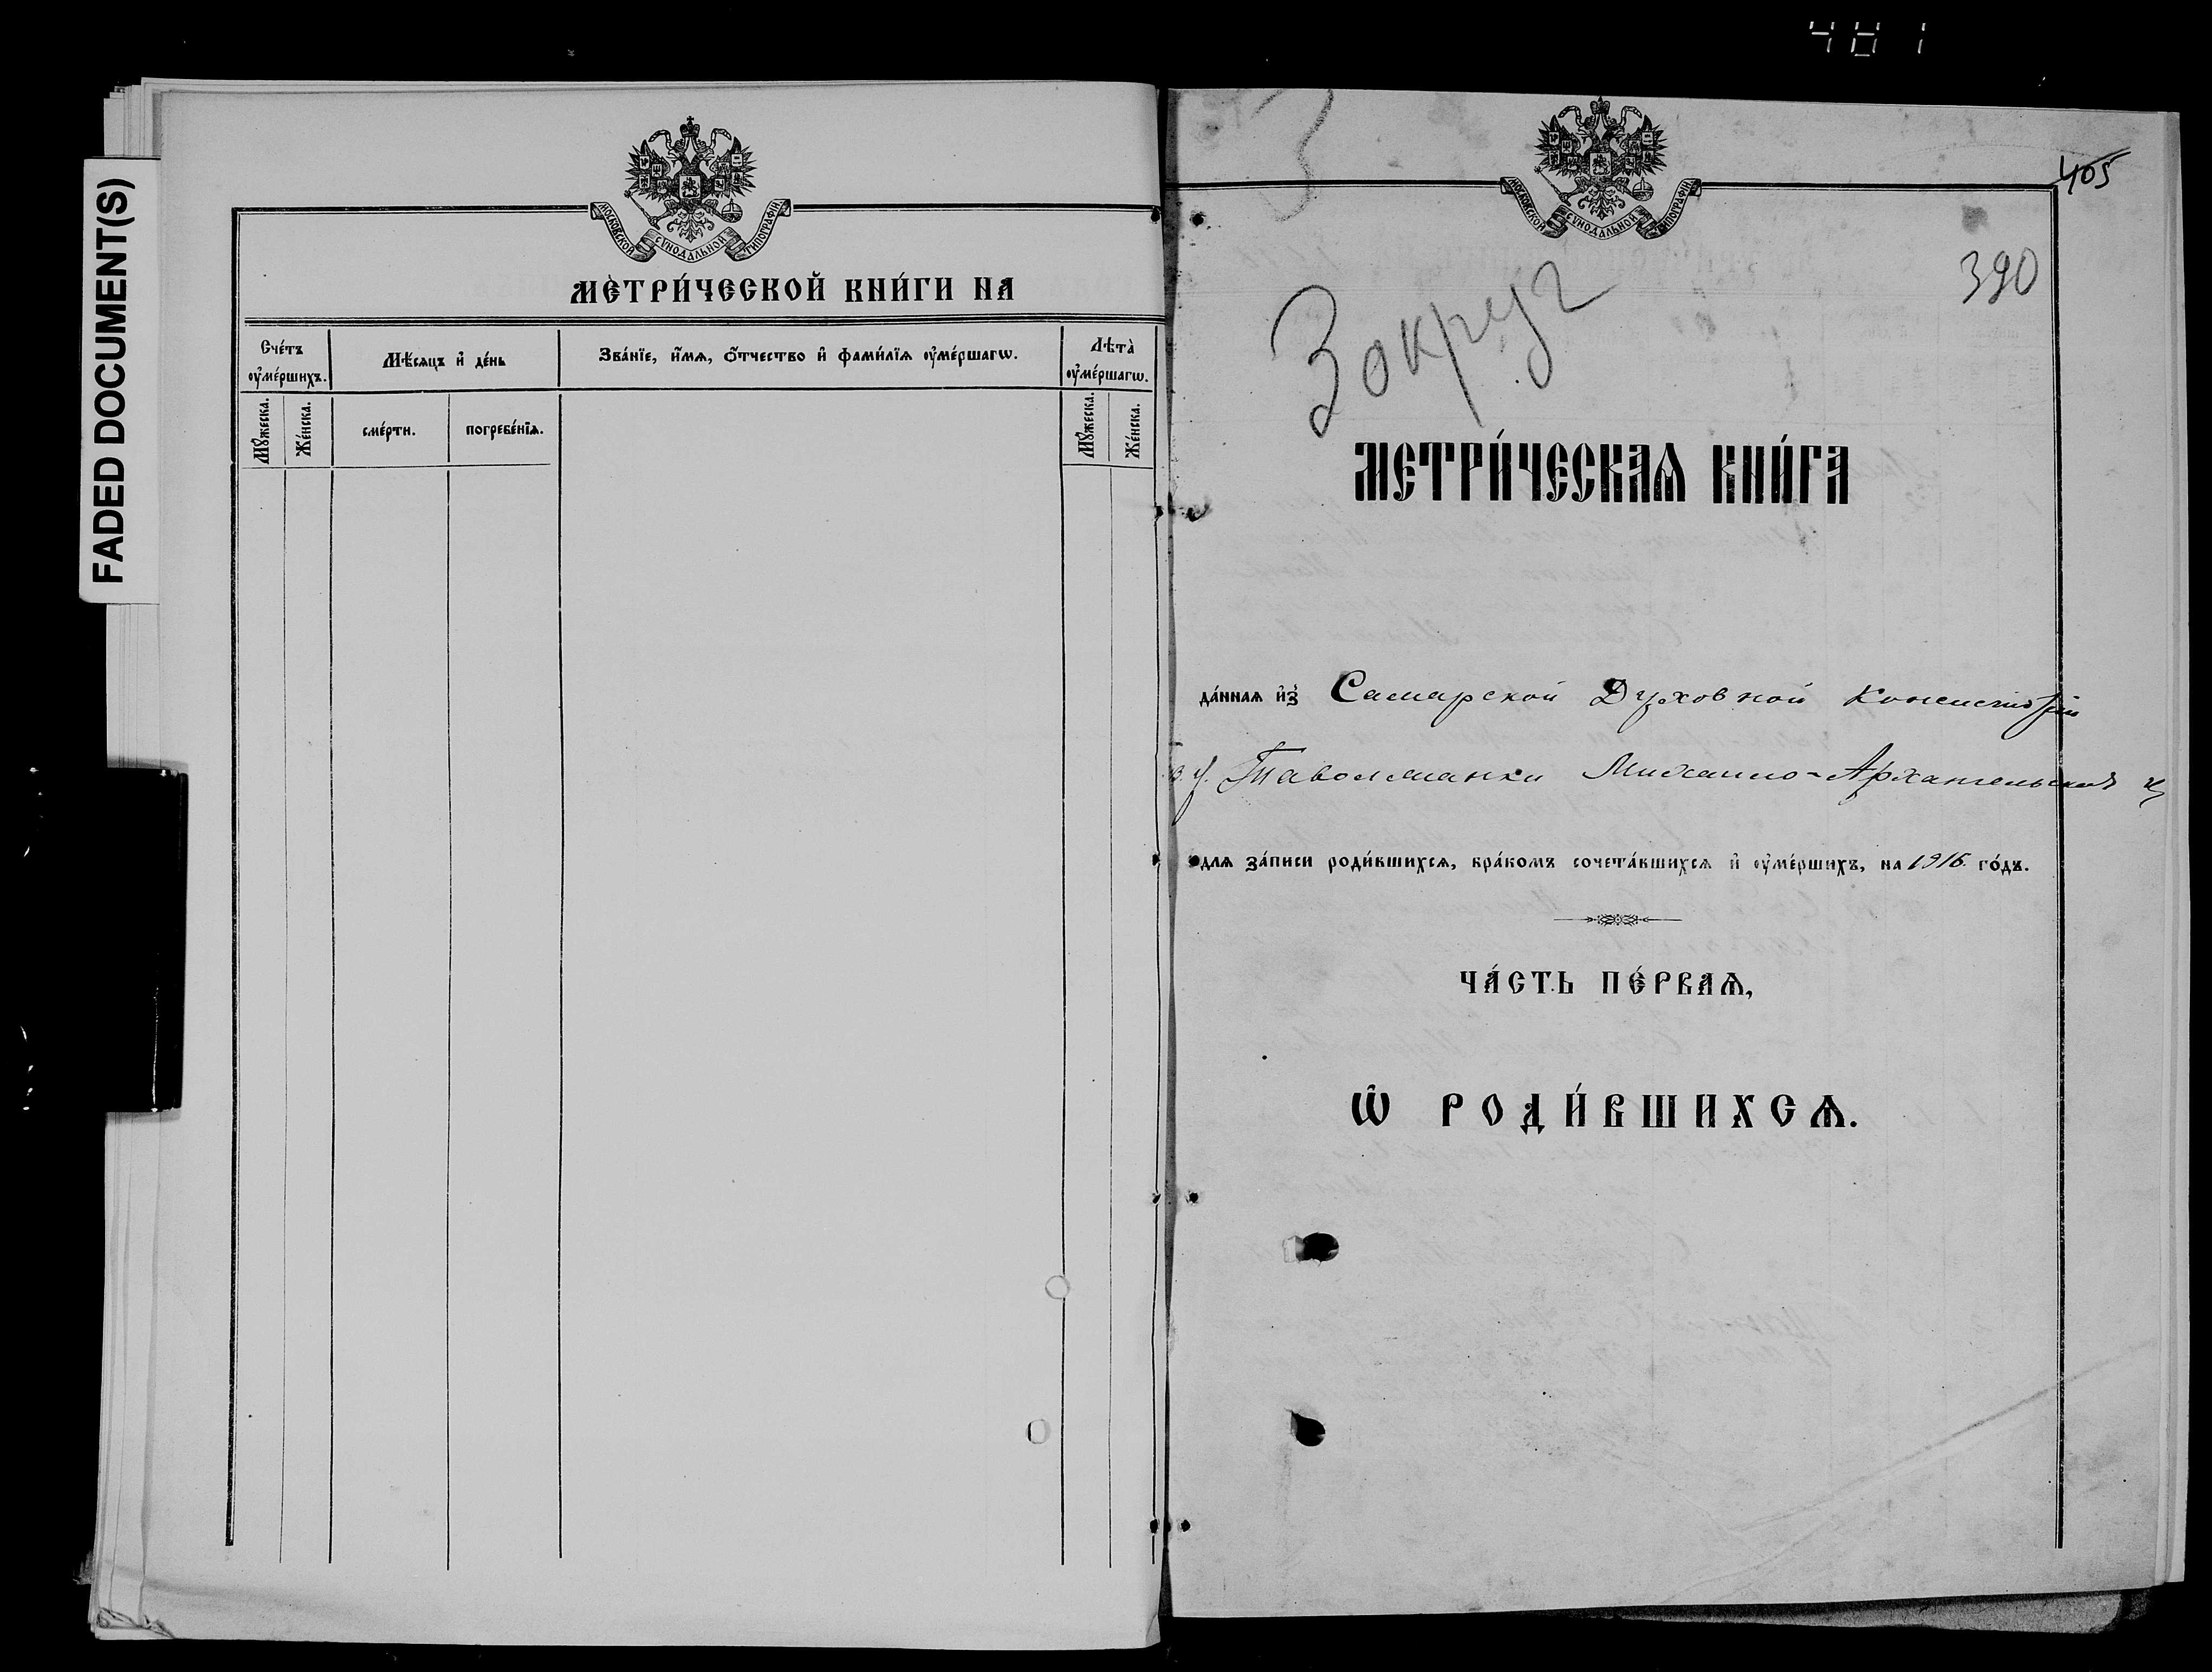 481
FADED DOCUMENT(S)
МОСКОВСКОЙ СѴНОДАЛЬНОЙ ТИПОГРАФІИ
МЕТРИ́ЧЕСКОЙ КНИ́ГИ НА
Сче́тъ ᲂу҆ме́ршихъ.
Мѣ́сяцъ и҆ де́нь
Зва́нїе, и҆́мѧ, ѻ҆́тчество и҆ фами́лїѧ ᲂу҆ме́ршагѡ.
Лѣта̀ ᲂу҆ме́ршагѡ.
Мꙋ́жеска.
Же́нска.
сме́рти.
погребе́нїѧ.
Мꙋ́жеска.
Же́нска.
МОСКОВСКОЙ СѴНОДАЛЬНОЙ ТИПОГРАФІИ
405
390
3
3 округ
МЕТРИ́ЧЕСКАѦ КНИ́ГА
да́ннаѧ и҆з̾ Самарской Духовной Консисторіи
в. у. Таволжанки Михаило-Архангельской ц
длѧ за́писи роди́вшихсѧ, бра́комъ сочета́вшихсѧ и҆ ᲂу҆ме́ршихъ, на 1916 го́дъ.
ЧА́СТЬ ПЕ́РВАѦ,
Ѽ РОДИ́ВШИХСѦ.